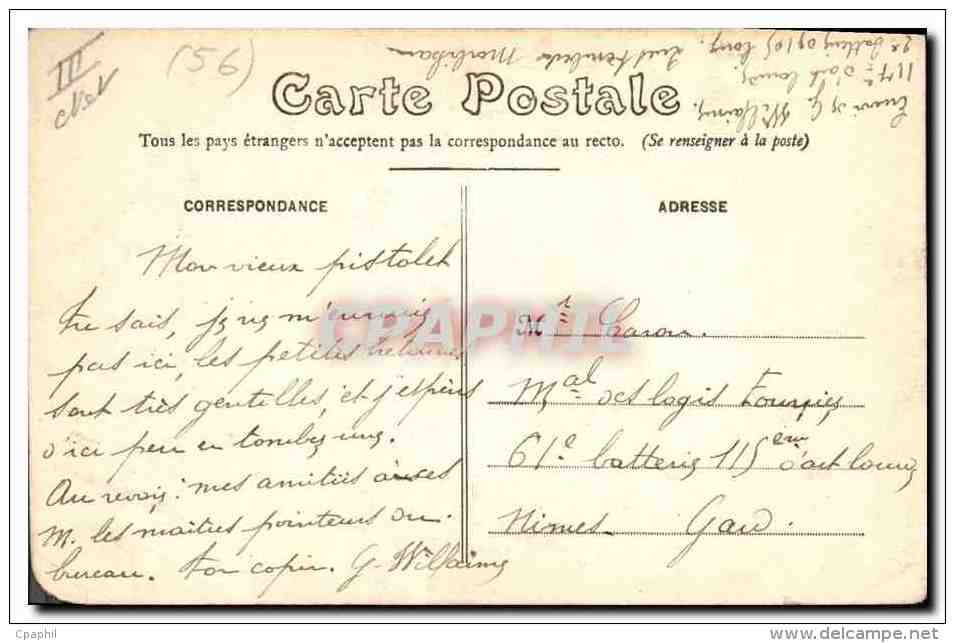 III
(56)
Envoi de G. Willaime,
117e d'art lourde,
Carte Postale
Tous les pays étrangers n'acceptent pas la correspondance au recto. (Se renseigner à la poste)
CORRESPONDANCE
ADRESSE
Mon vieux pistolet
Tu sais, je ne m'ennuie
pas ici, les petites bretonnes
sont très gentilles, et j'espère
d'ici peu en tomber une.
Au revoir: mes amitiés à ces
M. les maîtres pointeurs du
bureau. Ton copin. G. Willaime
Mr Caron.
Mal des logis Fourrier
61e batterie 115eme d'art lourde
Nimes Gard.
CPAPHIL
Cpaphil
www.delcampe.net